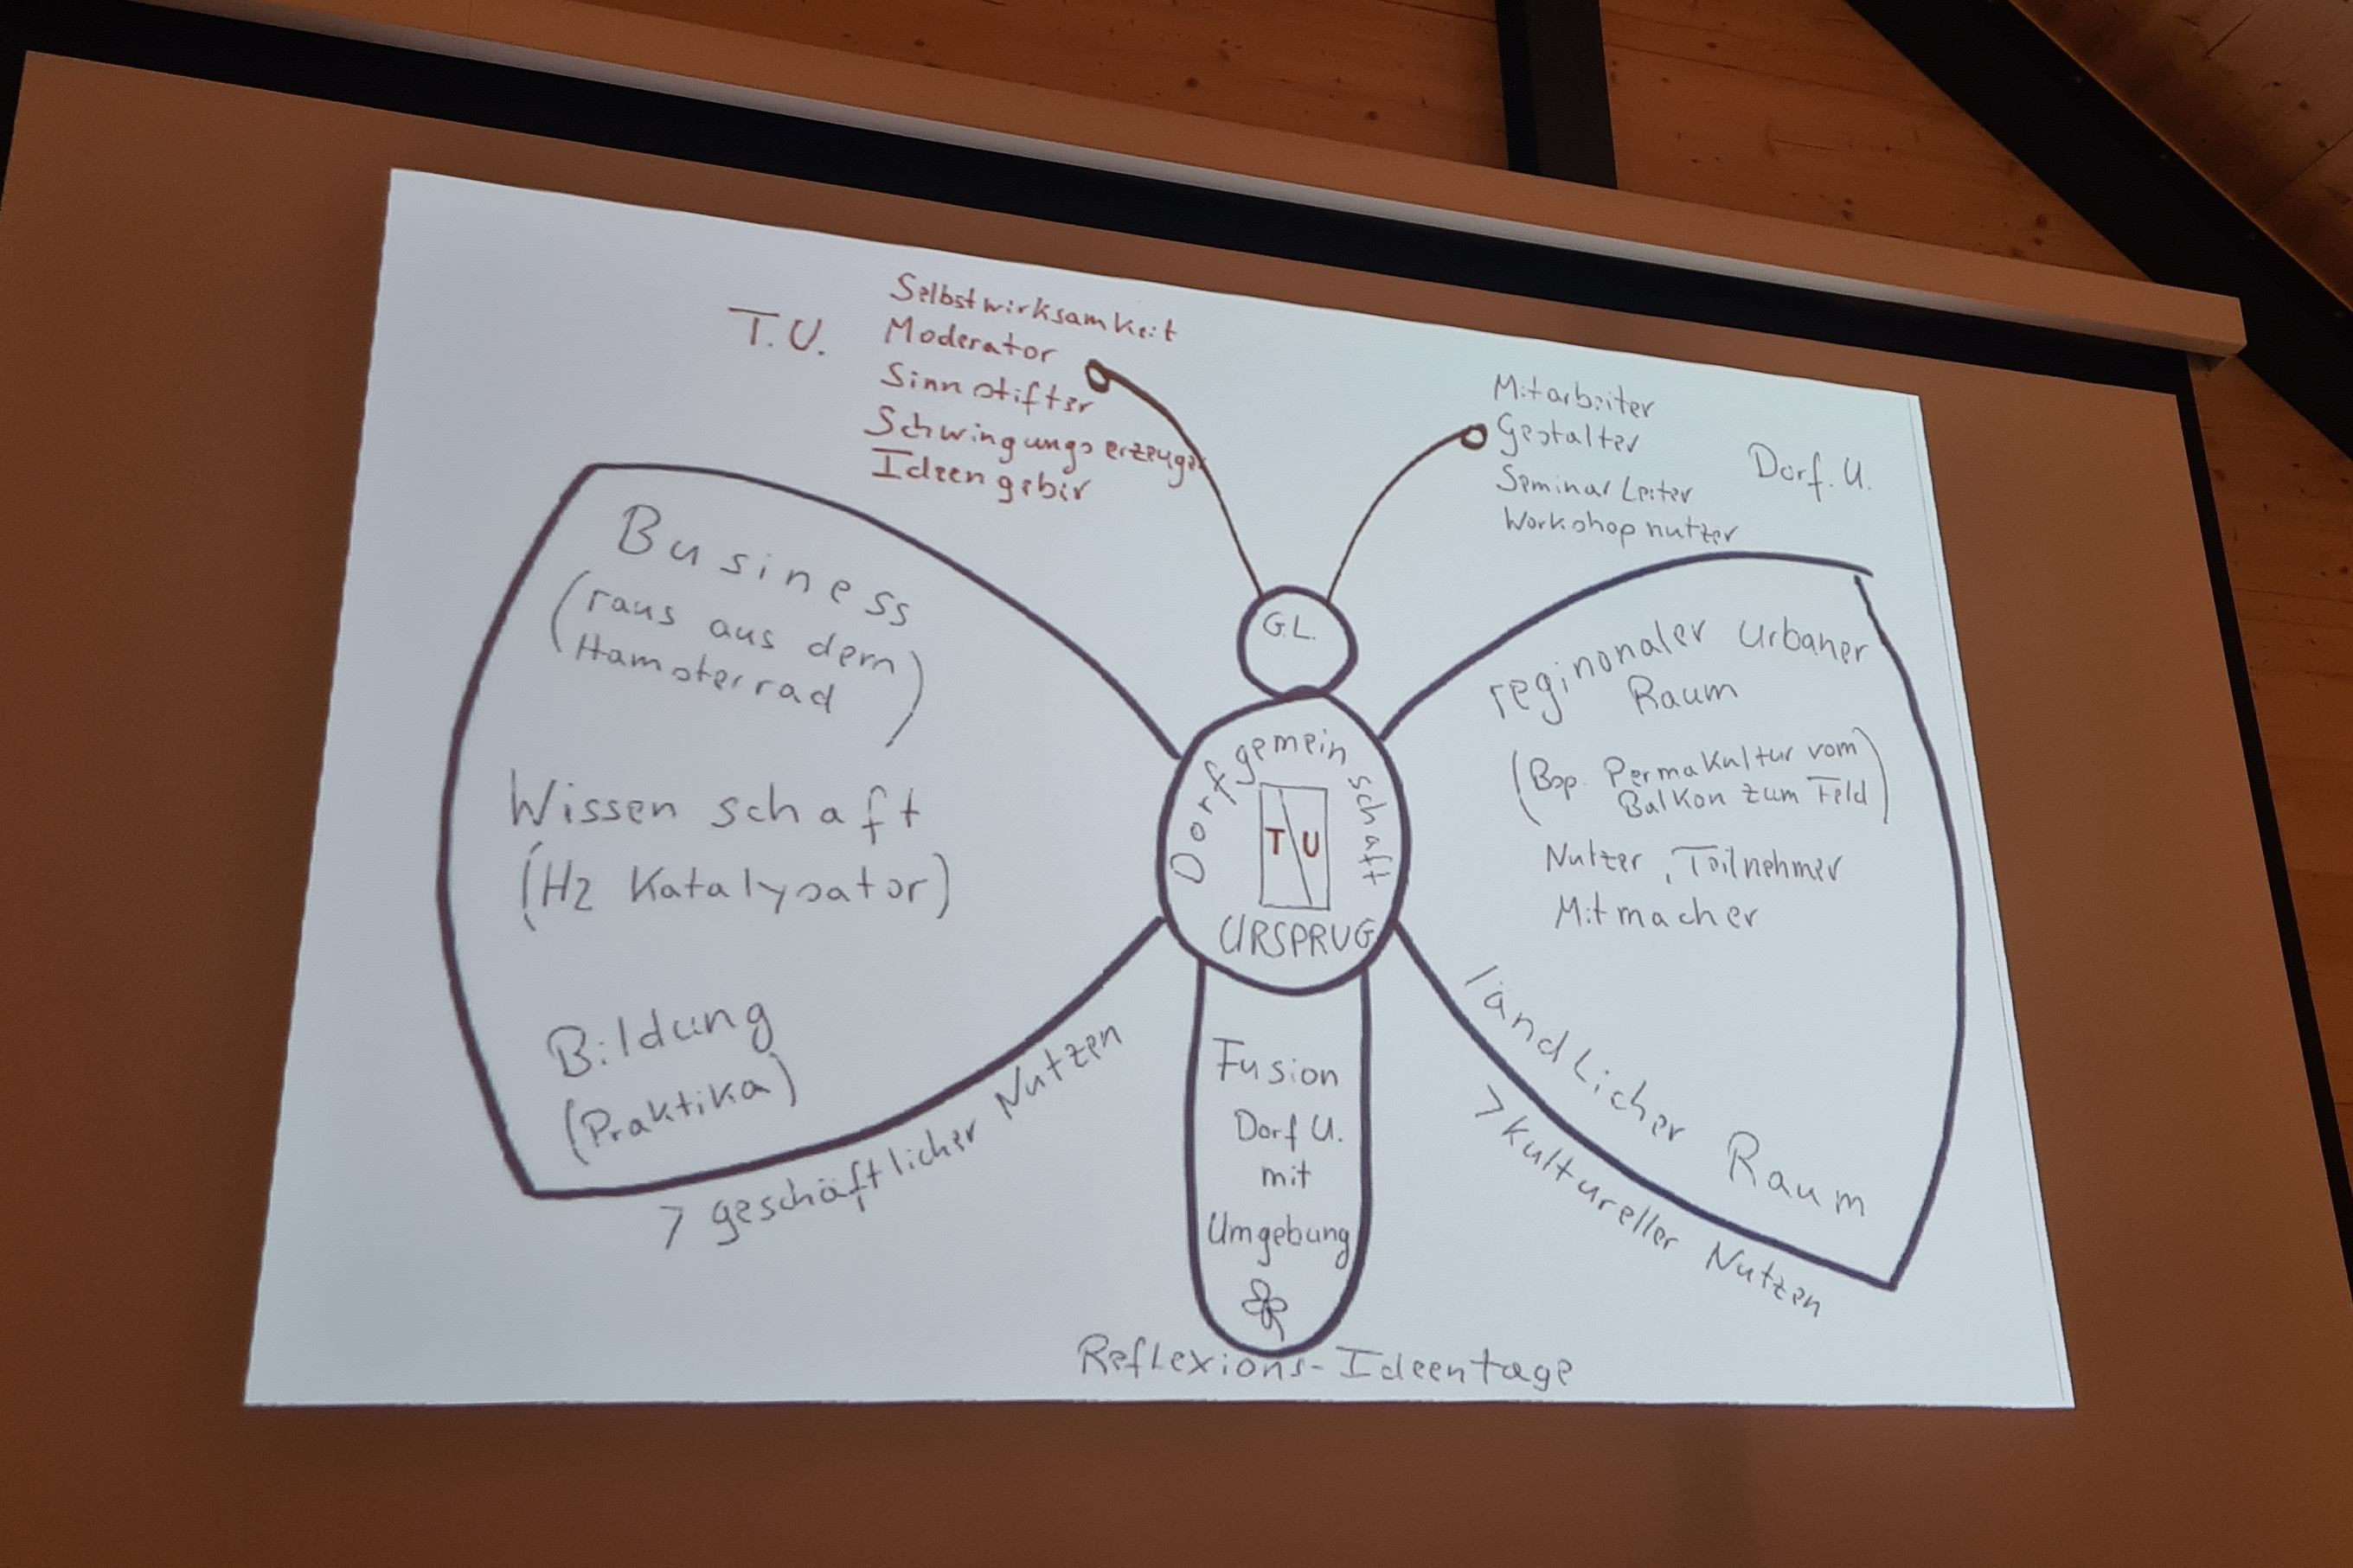 T.U.
Selbstwirksamkeit
Moderator
Sinnstifter
Schwingungserzeuger
Ideengebir
Mitarbeiter
Gestalter
Seminar Leiter
Workshopnutzer
Dorf. U.
G.L.
Business
(raus aus dem
Hamsterrad)
Wissenschaft
(H2 Katalysator)
Bildung
(Praktika)
> geschäftlicher Nutzen
Dorfgemeinschaft
T U
URSPRUG
Fusion
Dorf U.
mit
Umgebung
reginonaler urbaner
Raum
(Bsp. Permakultur vom
Balkon zum Feld)
Nutzer, Teilnehmer
Mitmacher
ländlicher Raum
> kultureller Nutzen
Reflexions-Ideentage